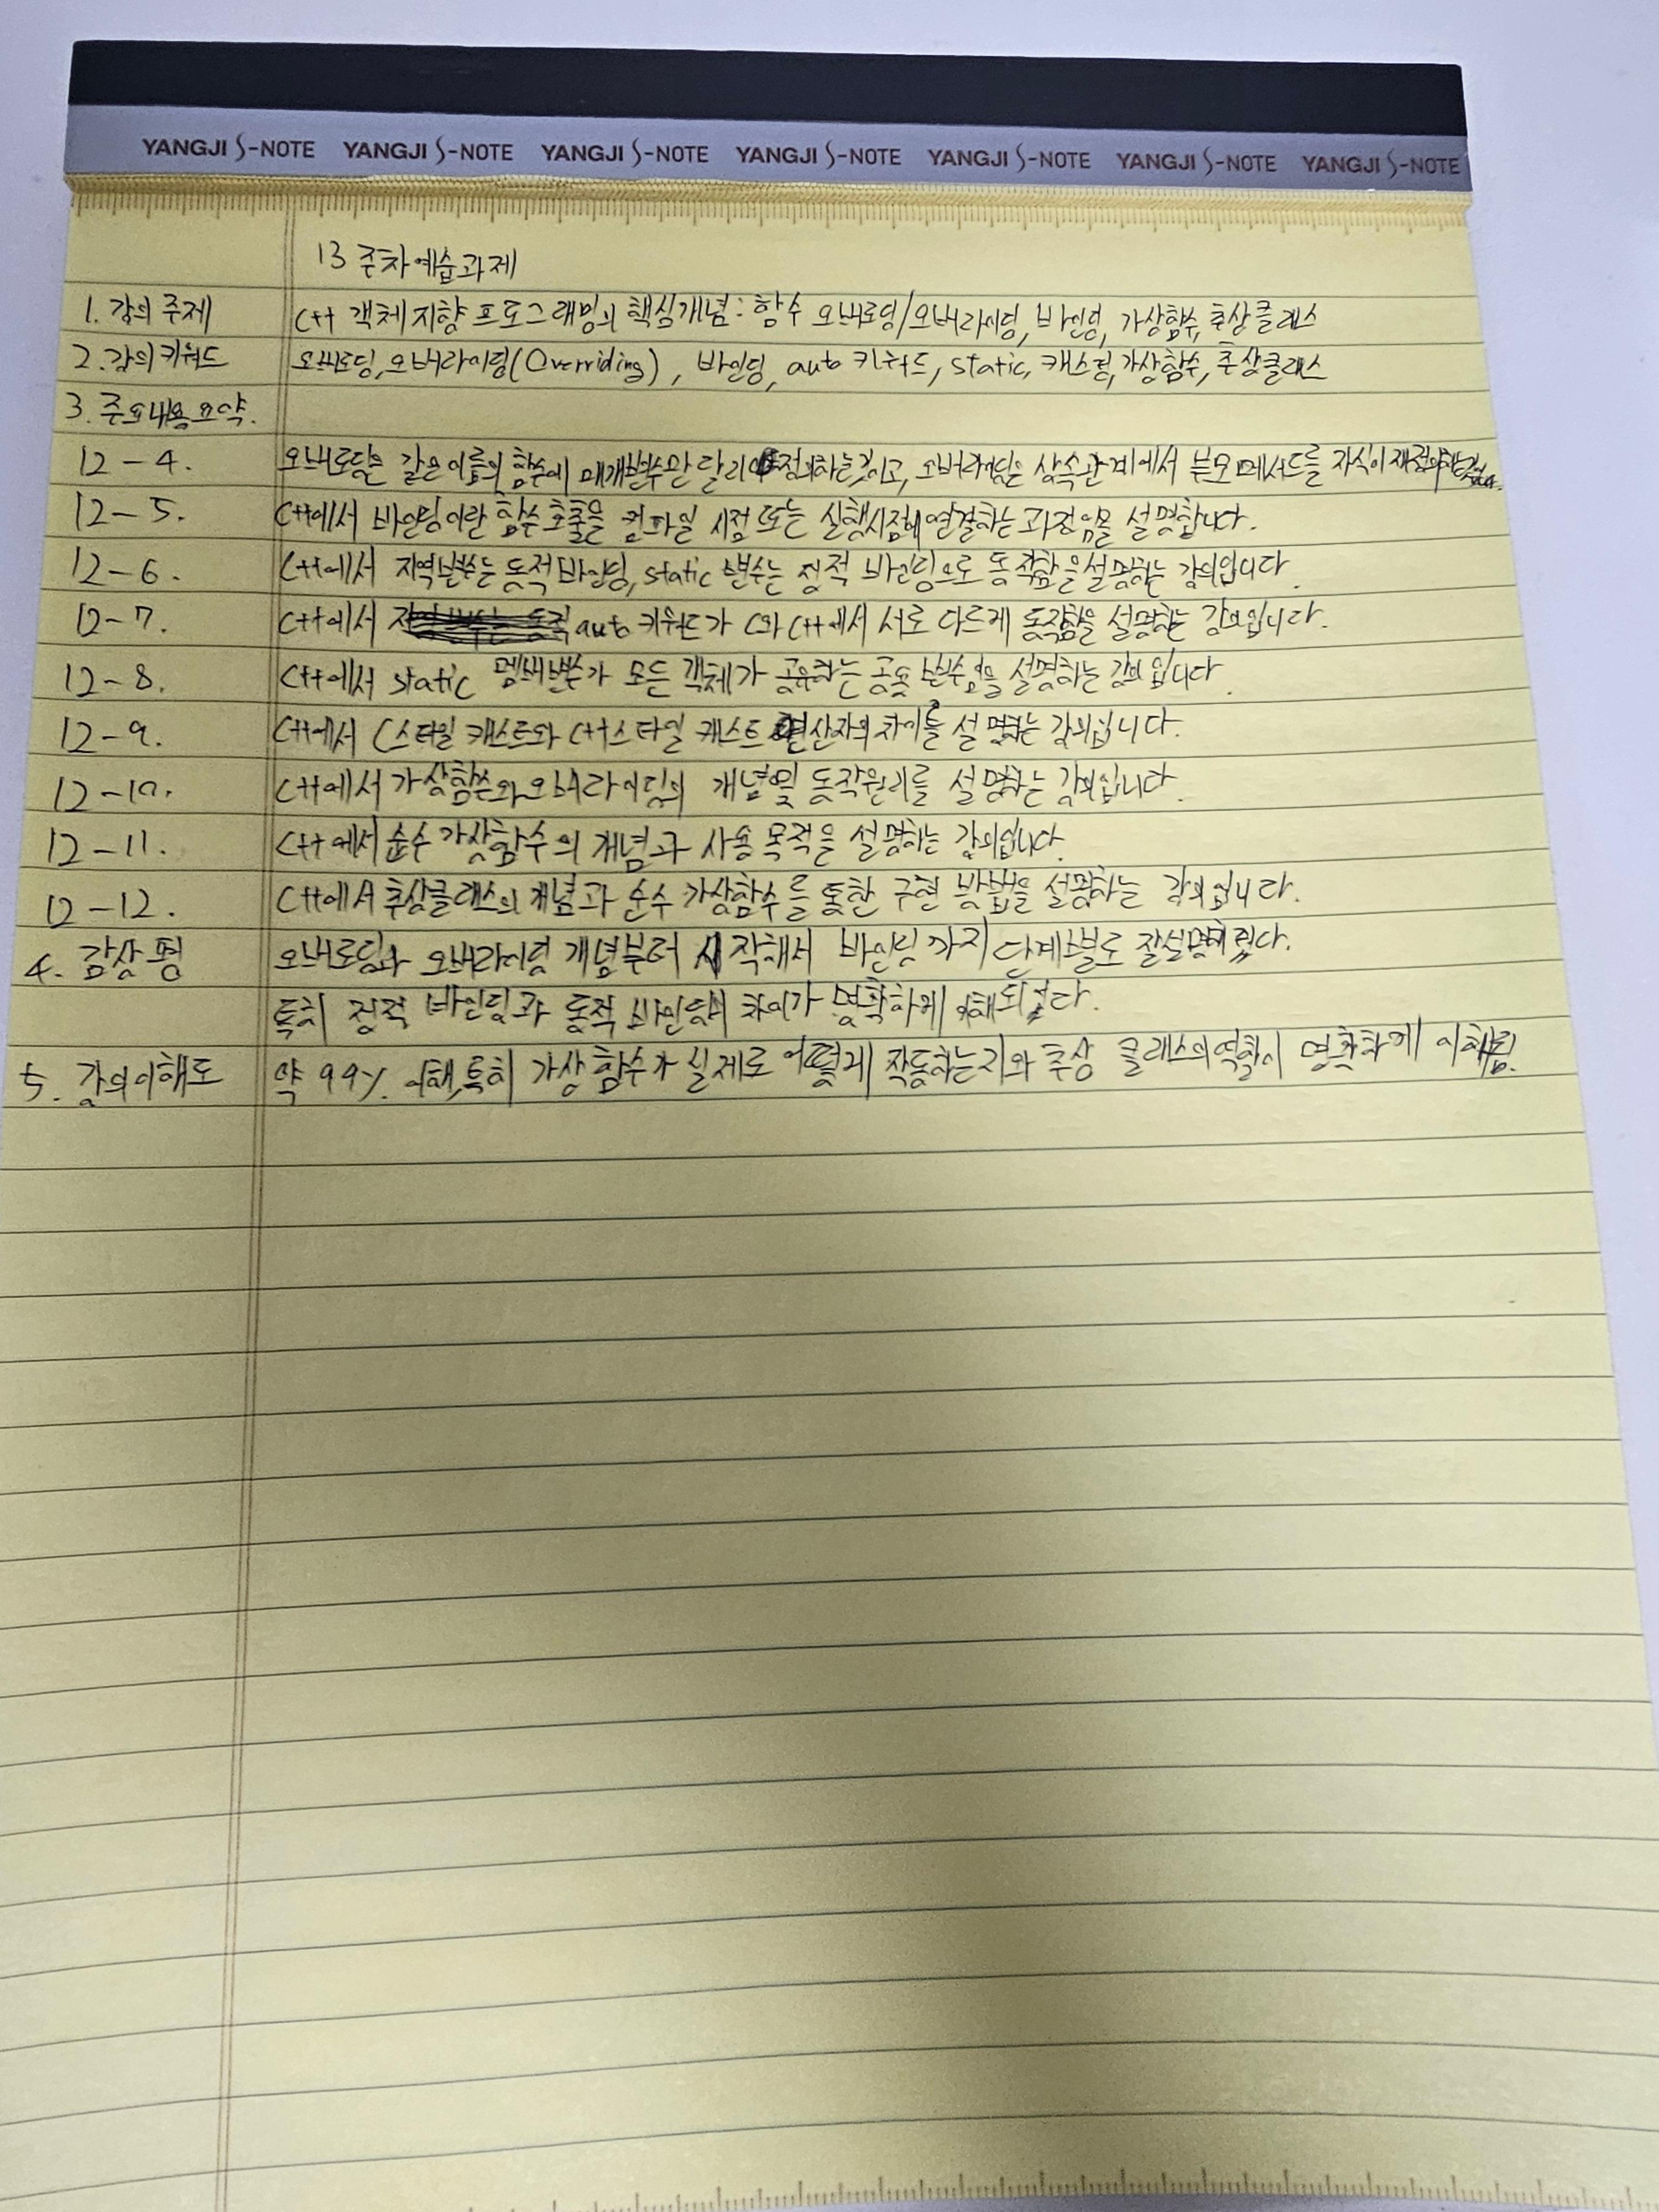 YANGJI S-NOTE YANGJI S-NOTE YANGJI S-NOTE YANGJI S-NOTE YANGJI S-NOTE YANGJI S-NOTE YANGJI S-NOTE
13 주차예습과제
1. 강의 주제 C++ 객체지향 프로그래밍의 핵심개념: 함수 오버로딩/오버라이딩, 바인딩, 가상함수, 추상클래스
2. 강의 키워드 오버로딩, 오버라이딩(Overriding), 바인딩, auto 키워드, static, 캐스팅, 가상함수, 추상클래스
3. 주요내용요약.
12-4. 오버로딩은 같은이름의 함수에 매개변수만 달리 정의하는것이고, 오버라이딩은 상속관계에서 부모메서드를 자식이 재정의
12-5. C++에서 바인딩이란 함수 호출을 컴파일 시점 또는 실행시점에 연결하는 과정임을 설명합니다.
12-6. C++에서 지역변수는 동적바인딩, static 변수는 정적 바인딩으로 동작함을 설명하는 강의입니다.
12-7. C++에서 auto 키워드가 C와 C++에서 서로 다르게 동작함을 설명하는 강의입니다.
12-8. C++에서 static 멤버변수가 모든 객체가 공유하는 공용 변수임을 설명하는 강의입니다.
12-9. C++에서 C스타일 캐스트와 C++스타일 캐스트 연산자의 차이를 설명하는 강의입니다.
12-10. C++에서 가상함수와 오버라이딩의 개념및 동작원리를 설명하는 강의입니다.
12-11. C++에서 순수 가상함수의 개념과 사용 목적을 설명하는 강의입니다.
12-12. C++에서 추상클래스의 개념과 순수 가상함수를 통한 구현 방법을 설명하는 강의입니다.
4. 감상평 오버로딩과 오버라이딩 개념부터 시작해서 바인딩까지 단계별로 잘설명해줬다.
특히 정적 바인딩과 동적 바인딩의 차이가 명확하게 이해되었다.
5. 강의이해도 약 99%. 이해,특히 가상 함수가 실제로 어떻게 작동하는지와 추상 클래스의역할이 명확하게 이해됨.